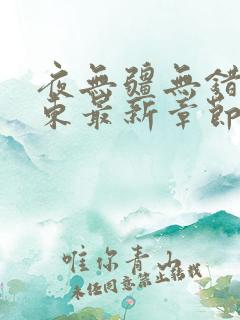 夜無疆無錯
東最新章節
唯你青山
未经同意禁止转载